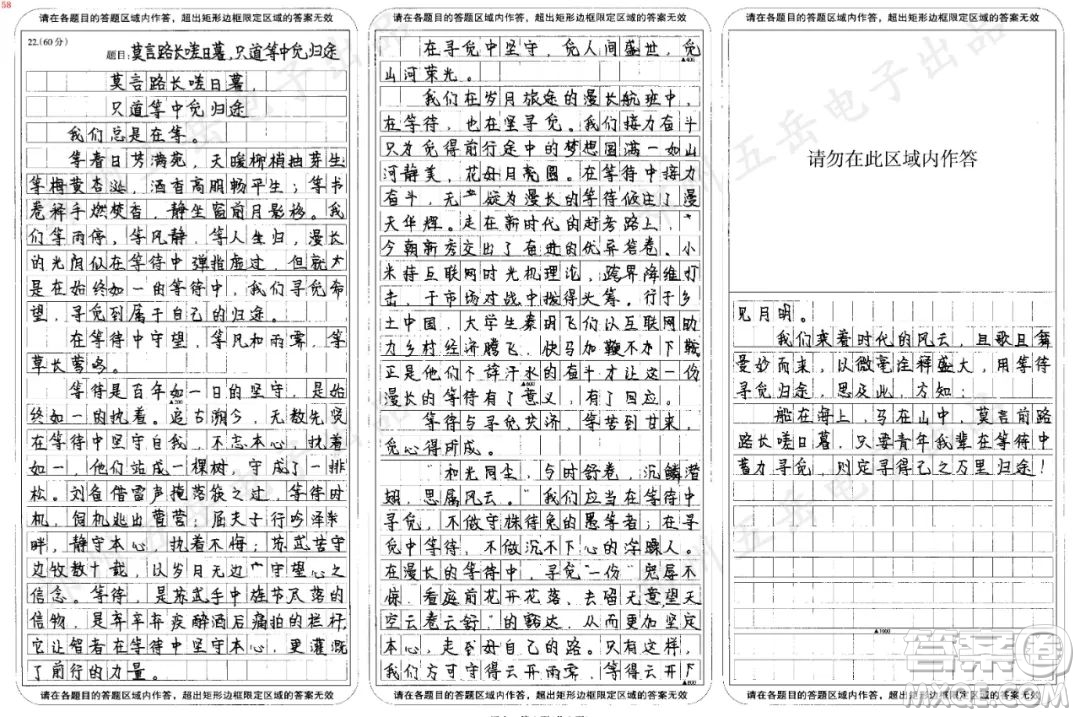 58
请在各题目的答题区域内作答，超出矩形边框限定区域的答案无效
22.(60分)
题目：莫言路长嗟日暮，只道等中觅归途
莫言路长嗟日暮，
只道等中觅归途
我们总是在等。
等春日芳满苑，天暖柳梢抽芽生
等梅黄杏涎，酒香高朋畅平生；等书
卷释手燃焚香，静坐窗前月影移。我
们等雨停，等风静，等人生归，漫长
的光阴似在等待中弹指虚过，但就大
是在始终如一的等待中，我们寻觅希
望，寻觅到属于自己的归途。
在等待中守望，等风和雨霁，等
草长莺鸣。
等待是百年如一日的坚守，是始
终如一的执着。追古溯今，无数先贤
在等待中坚守自我，不忘本心，执着
如一，他们站成一棵树，守成了一排
松。刘备借雷声掩落筷之过，等待时
机，伺机逃出曹营；屈夫子行吟泽
畔，静守本心，执着不悔；苏武苦守
边牧数十载，以岁月无边守望心之
信念。等待，是苏武手中旌节尺落的
信物，是辛弃疾醉酒后痛拍的栏杆，
它让智者在等待中坚守本心，更灌溉
了前行的力量。
请在各题目的答题区域内作答，超出矩形边框限定区域的答案无效
请在各题目的答题区域内作答，超出矩形边框限定区域的答案无效
在寻觅中坚守，觅人间盛世，觅
▲400
山河荣光。
我们在岁月旅途的漫长航班中，
在等待，也在坚寻觅。我们接力奋斗
只为觅得前行途中的梦想圆满一如山
河静美，花好月亮圆。在等待中接力
奋斗，无疑为漫长的等待倾注了漫
天华辉。走在新时代的赶考路上，
今朝新秀交出了奋进的优异答卷。小
米持互联网时光机理论，跨界降维打
击，于市场对战中拔得头筹。行于乡
土中国，大学生秦明飞们以互联网助
力乡村经济腾飞，快马加鞭不加下鞍
正是他们不辞汗水的奋斗才让这一份
▲600
漫长的等待有了意义，有了回应。
等待与寻觅共济，等苦到甘来，
觅心得所成。
“和光同尘，与时舒卷，沉鳞潜
翅，思属风云。”我们应当在等待中
寻觅，不做守株待兔的愚等者；在寻
觅中等待，不做沉不下心的浮躁人。
在漫长的等待中，寻觅一份“宠辱不
惊，看庭前花开花落，去留无意望天
空云卷云舒”的豁达，从而更加坚定
本心，走到好自己的路。只有这样，
我们方可守得云开雨霁，等待得云开
▲800
请在各题目的答题区域内作答，超出矩形边框限定区域的答案无效
请在各题目的答题区域内作答，超出矩形边框限定区域的答案无效
请勿在此区域内作答
见月明。
我们乘着时代的风云，且歌且舞
曼妙而来，以微毫注释盛大，用等待
寻觅归途，思及此，方知：
船在海上，马在山中，莫言前路
路长嗟日暮，只要青年我辈在等待中
蓄力寻觅，则定寻得己之万里归途！
▲1000
请在各题目的答题区域内作答，超出矩形边框限定区域的答案无效
五岳电子出品
答案圈